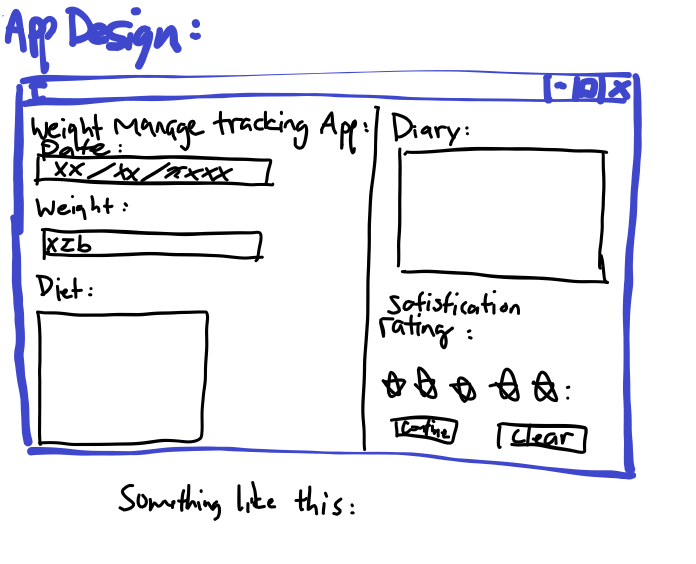 App Design:
Weight Manage tracking App:
Date:
xx/xx/xxxx
Weight:
xIb
Diet:
Diary:
Satisfication
rating:
clear
Something like this: